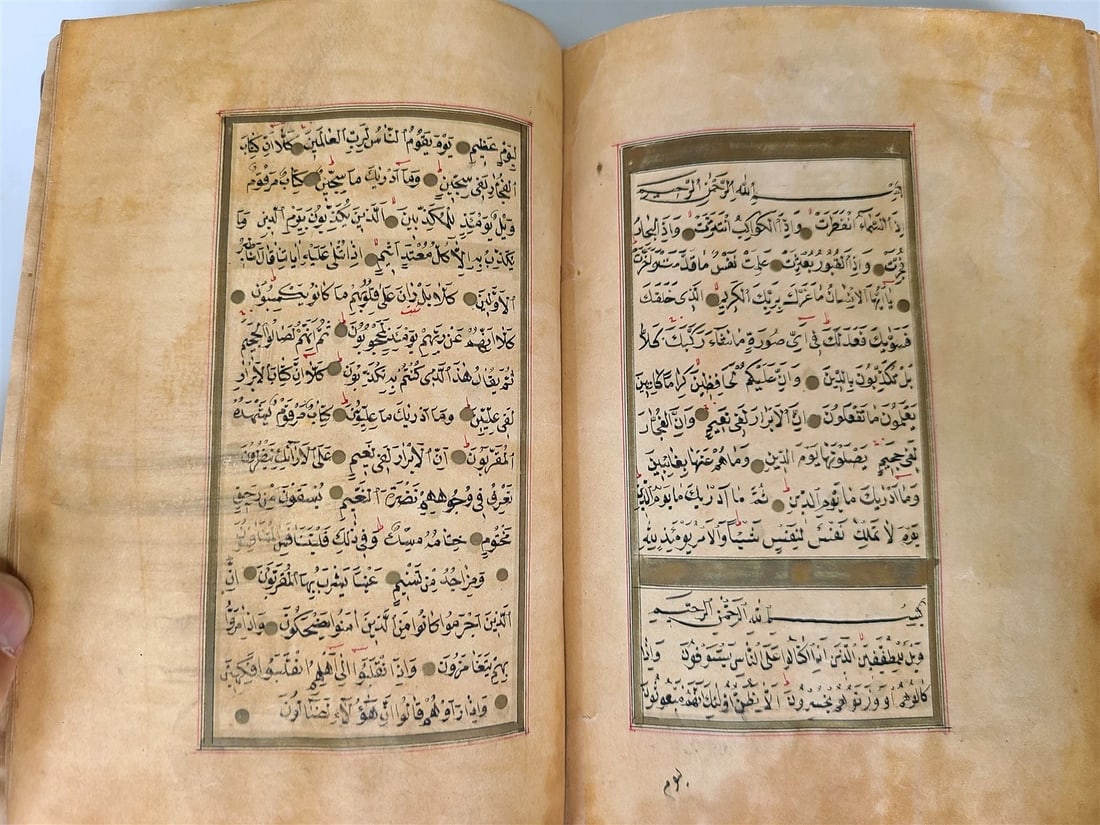 بِسْــــمِ اللهِ الرَّحْمٰنِ الرَّحِيمِ
اِذَا السَّمَاءُ انْفَطَرَتْ وَاِذَا الْكَوَاكِبُ انْتَثَرَتْ وَاِذَا الْبِحَارُ
فُجِّرَتْ وَاِذَا الْقُبُورُ بُعْثِرَتْ عَلِمَتْ نَفْسٌ مَا قَدَّمَتْ وَاَخَّرَتْ
يَا اَيُّهَا الْاِنْسَانُ مَا غَرَّكَ بِرَبِّكَ الْكَرِيمِ الَّذِى خَلَقَكَ
فَسَوّٰيكَ فَعَدَلَكَ فِى اَىِّ صُورَةٍ مَا شَاءَ رَكَّبَكَ كَلَّا
بَلْ تُكَذِّبُونَ بِالدِّينِ وَاِنَّ عَلَيْكُمْ لَحَافِظِينَ كِرَامًا كَاتِبِينَ
يَعْلَمُونَ مَا تَفْعَلُونَ اِنَّ الْاَبْرَارَ لَفِى نَعِيمٍ وَاِنَّ الْفُجَّارَ
لَفِى جَحِيمٍ يَصْلَوْنَهَا يَوْمَ الدِّينِ وَمَا هُمْ عَنْهَا بِغَائِبِينَ
وَمَا اَدْرٰيكَ مَا يَوْمُ الدِّينِ ثُمَّ مَا اَدْرٰيكَ مَا يَوْمُ الدِّينِ
يَوْمَ لَا تَمْلِكُ نَفْسٌ لِنَفْسٍ شَيْئًا وَالْاَمْرُ يَوْمَئِذٍ لِلّٰهِ
بِسْــــمِ اللهِ الرَّحْمٰنِ الرَّحِيمِ
وَيْلٌ لِلْمُطَفِّفِينَ الَّذِينَ اِذَا اكْتَالُوا عَلَى النَّاسِ يَسْتَوْفُونَ وَاِذَا
كَالُوهُمْ اَوْ وَزَنُوهُمْ يُخْسِرُونَ اَلَا يَظُنُّ اُولٰئِكَ اَنَّهُمْ مَبْعُوثُونَ
ليوم
لِيَوْمٍ عَظِيمٍ يَوْمَ يَقُومُ النَّاسُ لِرَبِّ الْعَالَمِينَ كَلَّا اِنَّ كِتَابَ
الْفُجَّارِ لَفِى سِجِّينٍ وَمَا اَدْرٰيكَ مَا سِجِّينٌ كِتَابٌ مَرْقُومٌ
وَيْلٌ يَوْمَئِذٍ لِلْمُكَذِّبِينَ الَّذِينَ يُكَذِّبُونَ بِيَوْمِ الدِّينِ وَمَا
يُكَذِّبُ بِهِ اِلَّا كُلُّ مُعْتَدٍ اَثِيمٍ اِذَا تُتْلٰى عَلَيْهِ اٰيَاتُنَا قَالَ اَسَاطِيرُ
الْاَوَّلِينَ كَلَّا بَلْ رَانَ عَلٰى قُلُوبِهِمْ مَا كَانُوا يَكْسِبُونَ
كَلَّا اِنَّهُمْ عَنْ رَبِّهِمْ يَوْمَئِذٍ لَمَحْجُوبُونَ ثُمَّ اِنَّهُمْ لَصَالُوا الْجَحِيمِ
ثُمَّ يُقَالُ هٰذَا الَّذِى كُنْتُمْ بِهِ تُكَذِّبُونَ كَلَّا اِنَّ كِتَابَ الْاَبْرَارِ
لَفِى عِلِّيِّينَ وَمَا اَدْرٰيكَ مَا عِلِّيُّونَ كِتَابٌ مَرْقُومٌ يَشْهَدُهُ
الْمُقَرَّبُونَ اِنَّ الْاَبْرَارَ لَفِى نَعِيمٍ عَلَى الْاَرَائِكِ يَنْظُرُونَ
تَعْرِفُ فِى وُجُوهِهِمْ نَضْرَةَ النَّعِيمِ يُسْقَوْنَ مِنْ رَحِيقٍ
مَخْتُومٍ خِتَامُهُ مِسْكٌ وَفِى ذٰلِكَ فَلْيَتَنَافَسِ الْمُتَنَافِسُونَ
وَمِزَاجُهُ مِنْ تَسْنِيمٍ عَيْنًا يَشْرَبُ بِهَا الْمُقَرَّبُونَ اِنَّ
الَّذِينَ اَجْرَمُوا كَانُوا مِنَ الَّذِينَ اٰمَنُوا يَضْحَكُونَ وَاِذَا مَرُّوا
بِهِمْ يَتَغَامَزُونَ وَاِذَا انْقَلَبُوا اِلٰى اَهْلِهِمُ انْقَلَبُوا فَكِهِينَ
وَاِذَا رَاَوْهُمْ قَالُوا اِنَّ هٰؤُلَاءِ لَضَالُّونَ